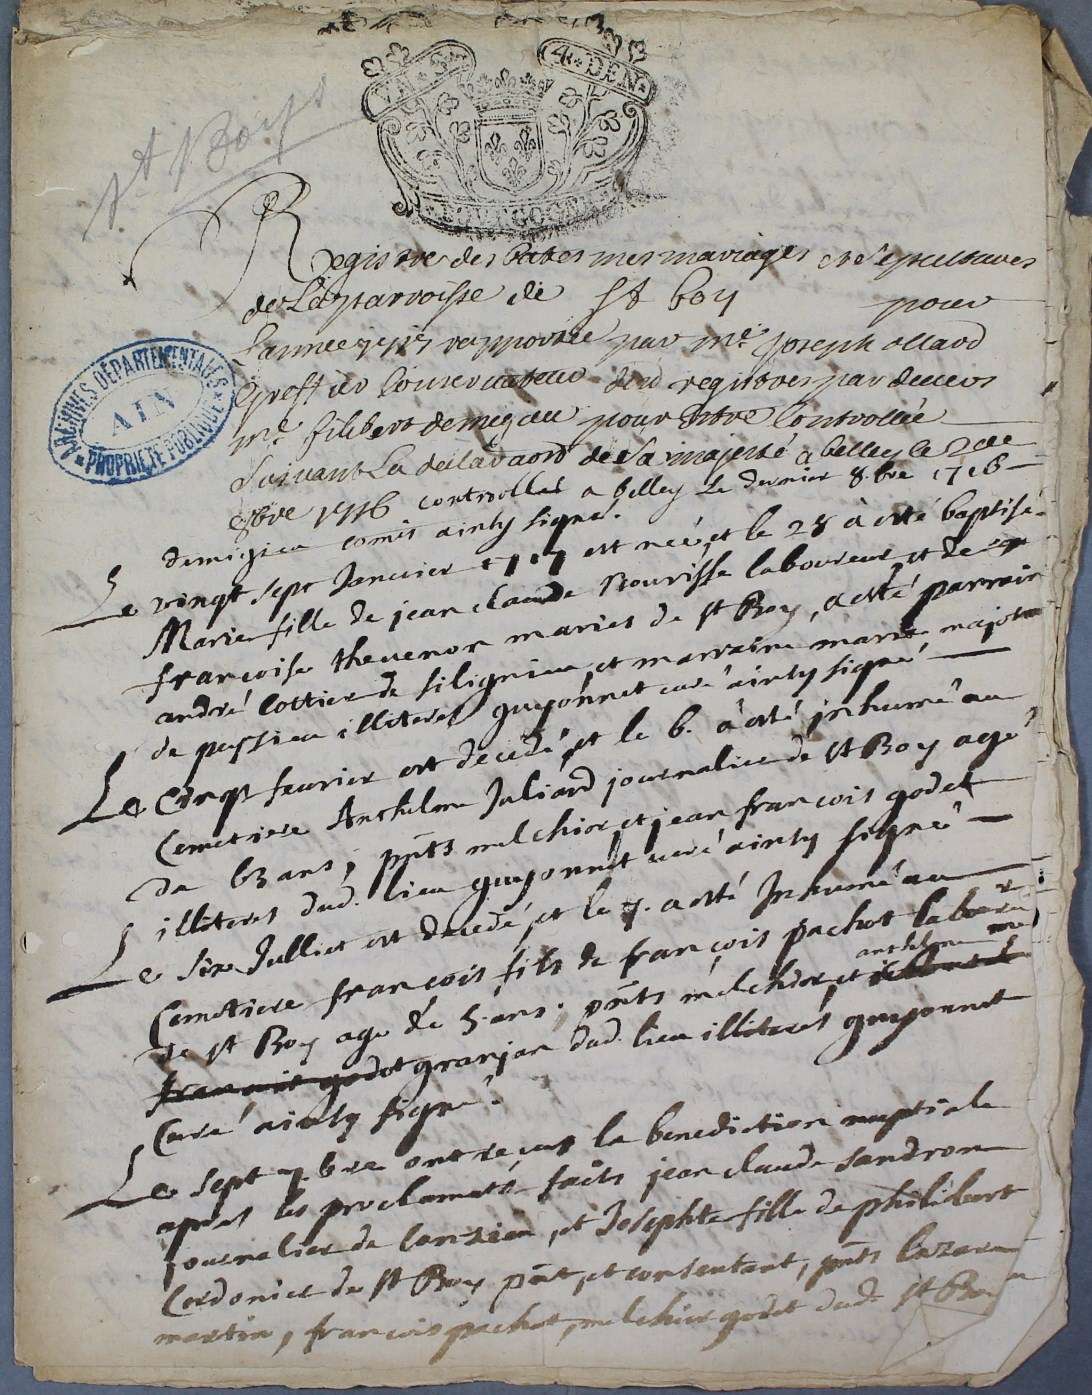 4 DEN
BOURGOGNE
St Boys
Registre des batesmes mariages et sepultures
de la parroisse de St boy pour
l'annee 1717 rapportée par me Joseph
greffier Conservateur desd registres par devers
me filibert demigieu pour estre Controllée
Suivant La declaraon de Sa majesté a belley le 2
8bre 1716 controllé a belley le dernier 8.bre 1716
demigieu comis ainsy signé.
ARCHIVES DÉPARTEMENTALES
AIN
PROPRIÉTÉ PUBLIQUE
Le vingt sept Janvier 1717 est née, et le 28 à esté baptisé
Marie fille de jean claude Nourisse laboureur et de
françoise thevenon mariés de st Boy, a esté parrain
andré Cottier de silignieu, et marraine marie
de pussieu illiteres guyonnet curé ainsy signé
Le Cinqs feurier est decedé, et le 6. à esté jnhumé au
Cemetiere Anthelme Juliard journalier de st Boy agé
de 63 ans, pnts melchior, et jean françois godet
illiteres dud. lieu guyonnet curé ainsy signé
Le six Julliet est decedé, et le 7. a esté Inhumé au
Cemetiere françois fils de françois pachot
de st Boy agé de 5 ans; pnts melchior, et anthelme
françois godot granjan dud. lieu illiterés guyonnet
Curé ainsy signé.
Le sept 7.bre ont reçus la benediction nuptiale
apres les proclamats faits jean claude sandron
journalier de Conzieu, et Josephte fille de philibert
Cordonier de st Boy pnt, et consentant, pnts lazare
martin, françois pachot, melchior godet dud. st Boy